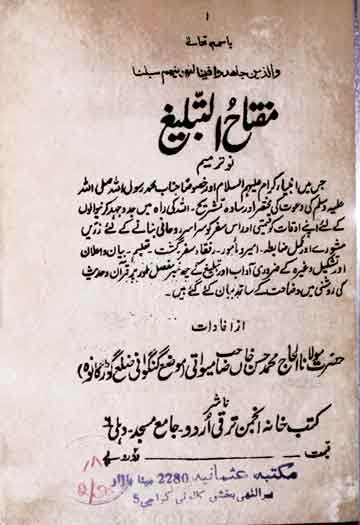 ۱
باسمہ تعالےٰ
والذین جاھدوا فینا لنھدینھم سبلنا
مفتاحُ التبلیغ
نو ترمیم
جس میں انبیاء کرام علیہم السلام اور خصوصًا جناب محمد رسول اللہ صلی اللہ
علیہ وسلم کی دعوت کی مختصر اور سادہ تشریح۔ اللہ کی راہ میں جدوجہد کرنیوالوں
کے لئے اپنے اوقات کو قیمتی اور اس سفر کو سراسر روحانی بنانے کے لئے زرّیں
مشورے اور مکمل ضابطہ۔ امیر و مأمور۔ رفقاء سفر گشت۔ تعلیم۔ بیان و اعلان
اور تشکیل وغیرہ کے ضروری آداب اور تبلیغ کے چھ نمبر مفصل طور پر قرآن و حدیث
کی روشنی میں وضاحت کے ساتھ بیان کئے گئے ہیں۔
از افادات
حضرت مولانا الحاج محمد حسن خاں صاحب میواتی (موضع گنگوانی ضلع گوڑگانوہ)
ناشر
کتب خانہ انجمن ترقی اُردو۔ جامع مسجد۔ دہلی ۶
قیمت ــــــــــ روپے
مکتبہ عثمانیہ 2280 مینا بازار
پیر الٰہی بخش کالونی کراچی 5